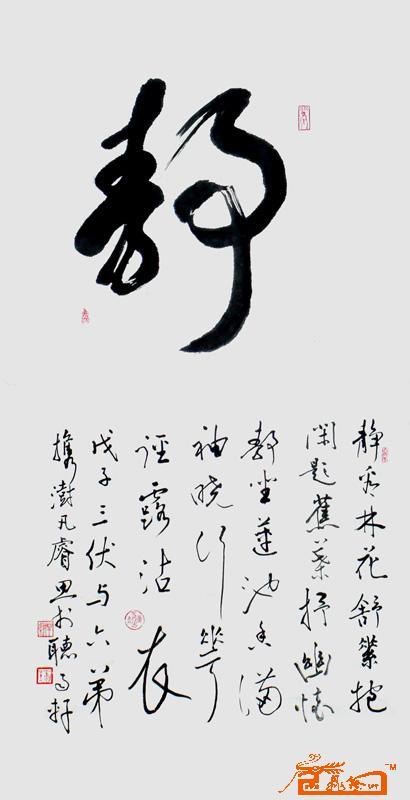 静
静看林花舒縈抱
闲题蕉葉抒幽懷
静坐蓮池香满
袖晓行花
径露沾衣
戊子三伏与六弟
携澍凡睿思於聽雨軒